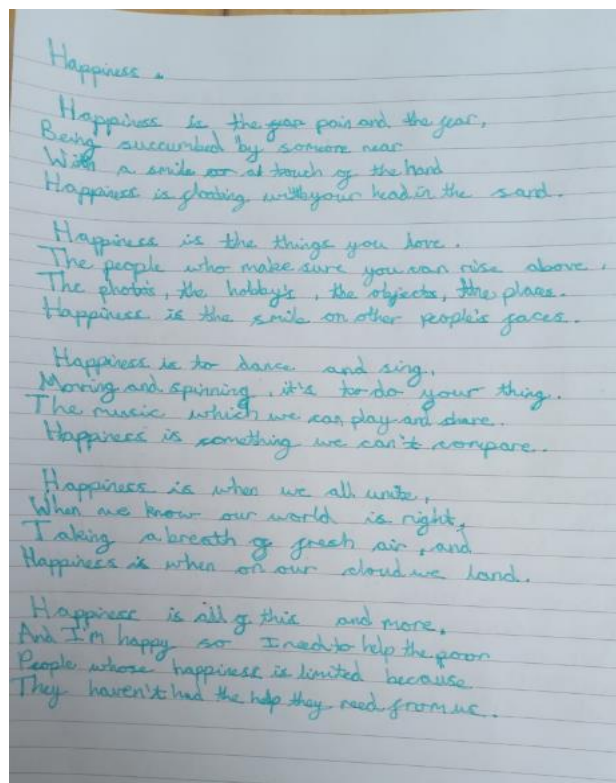 Happiness.
Happiness is the pain and the fear,
Being succumbed by someone near
With a smile or at touch of the hand
Happiness is floating with your head in the sand.
Happiness is the things you love.
The people who make sure you can rise above.
The photo's, the hobby's, the objects, the places.
Happiness is the smile on other people's faces.
Happiness is to dance and sing,
Moving and spinning, it's to do your thing.
The music which we can play and share.
Happiness is something we can't compare.
Happiness is when we all unite,
When we know our world is right,
Taking a breath of fresh air, and
Happiness is when on our cloud we land.
Happiness is all of this and more,
And I'm happy so I need to help the poor
People whose happiness is limited because
They haven't had the help they need from us.